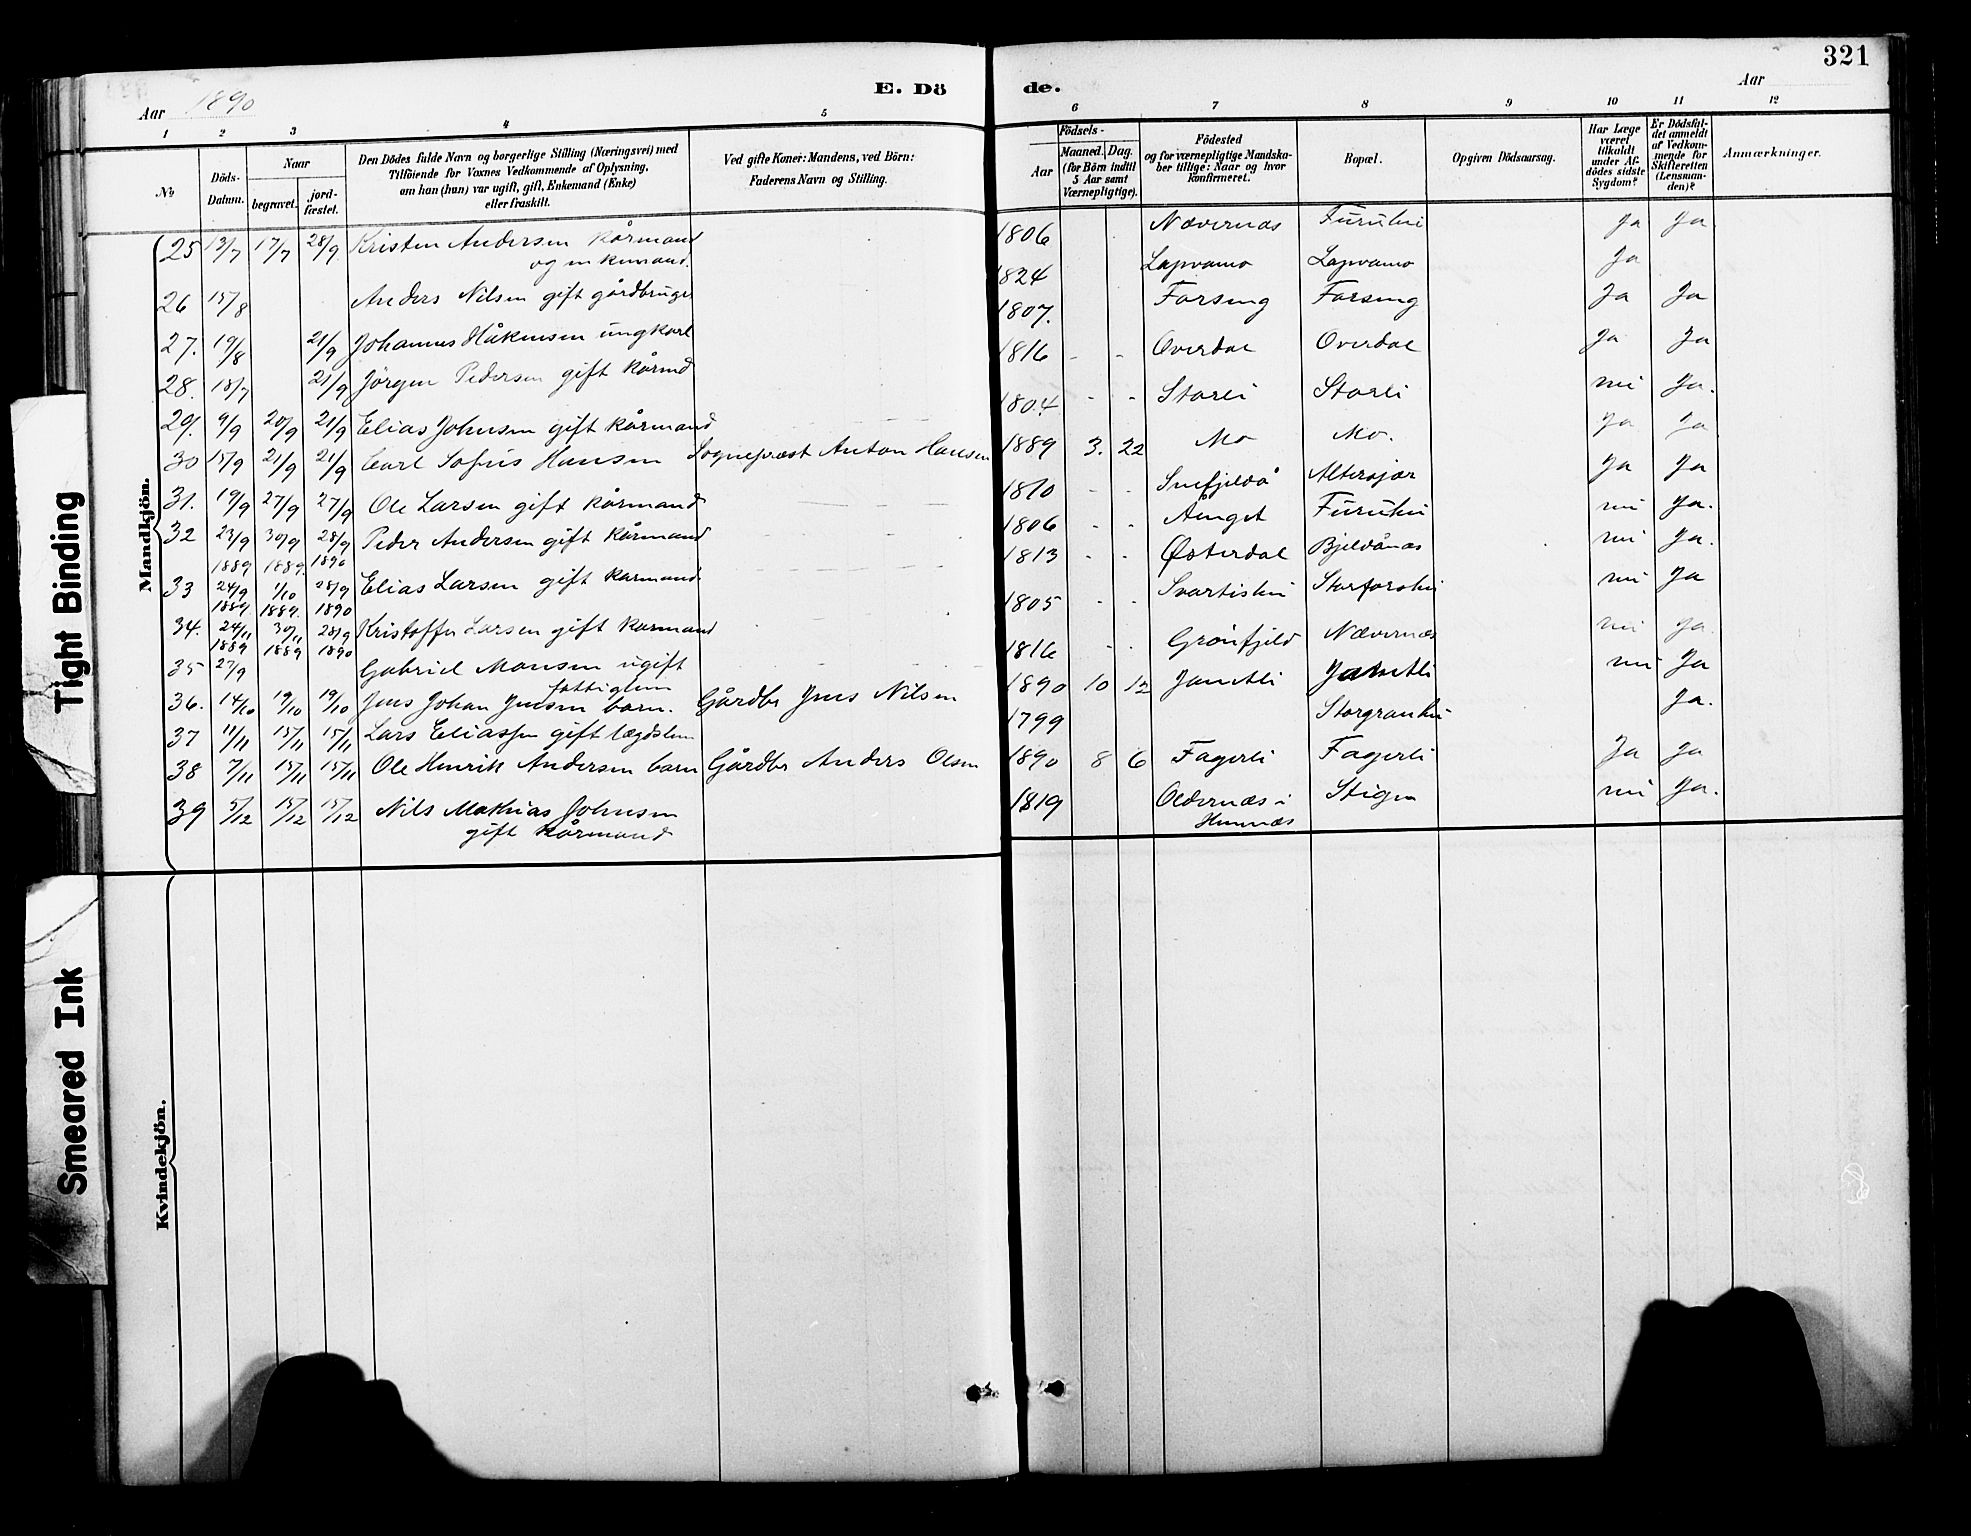 321
E. Döde.
Aar 1890
Aar
1 2 3 4 5 6 7 8 9 10 11 12
No
Döds-Datum.
Naar
begravet.
jord-fæstet.
Den Dödes fulde Navn og borgerlige Stilling (Næringsvei) med
Tilföiende for Voxnes Vedkommende af Oplysning,
om han (hun) var ugift, gift, Enkemand (Enke)
eller fraskilt.
Ved gifte Koner: Mandens, ved Börn:
Faderens Navn og Stilling.
Födsels-
Aar
Maaned. Dag.
(for Börn indtil
5 Aar samt
Værnepligtige).
Födested
og for værnepligtige Mandska-
ber tillige: Naar og hvor
konfirmeret.
Bopæl.
Opgiven Dödsaarsag.
Har Læge
været
tilkaldt
under Af-
dödes sidste
Sygdom?
Er Dödsfal-
det anmeldt
af Vedkom-
mende for
Skifteretten
(Lensman-
den)?
Anmærkninger.
Mandkjön.
25 13/7 17/7 28/9 Kristen Andersen kårmand 1806 Nævernæs Furuhei Ja Ja
og enkemand.
26 15/8 Anders Nilsen gift gårdbruger 1824 Lapvamo Lapvamo Ja
27. 19/8 21/9 Johannes Håkensen ungkarl 1807. Forsmog Forsmog Ja Ja
28. 18/7 21/9 Jörgen Pedersen gift kårmd 1816 - - Overdal Overdal Ja Ja
29. 9/9 20/9 21/9 Elias Johnsen gift kårmand 1804 - - Storli Storli nei Ja.
30 15/9 21/9 21/9 Carl Sofus Hansen Sognepræst Anton Hansen 1889 3. 22 Mo Mo. Ja Ja
31. 19/9 27/9 27/9 Ole Larsen gift kårmand 1810 - - Snefjeldå Ja Ja
32 23/9 30/9 28/9 Peder Andersen gift kårmand 1806 - - Ånget Furuhei nei Ja.
1889 1889. 1890
33 24/9 1/10 28/9 Elias Larsen gift kårmand 1813 - - Østerdal Bjeldånæs nei Ja.
1889. 1889. 1890
34. 24/11 30/11 28/9 Kristoffer Larsen gift kårmand 1805 - - Svartishei Storforshei nei Ja
1889 1889 1890
35 27/9 Gabriel Monsen ugift 1816 - - Grönfjeld Nævernæs nei Ja.
fattiglem
36. 14/10 19/10 19/10 Jens Johan Jensen barn. Gårdbr Jens Nilsen 1890 10 12 Jamtli Jamtli nei Ja
37 11/11 15/11 15/11 Lars Eliassen gift lægdslem 1799 Storgranhei Ja.
38 7/11 15/11 15/11 Ole Henrik Andersen barn Gårdbr Anders Olsen 1890 8 6 Fagerli Fagerli Ja Ja
39 5/12 15/12 15/12 Nils Mathias Johnsen 1819 Oldernæs i Stigen nei Ja.
gift kårmand Hemnæs
Kvindekjön.
Tight Binding
Smeared Ink